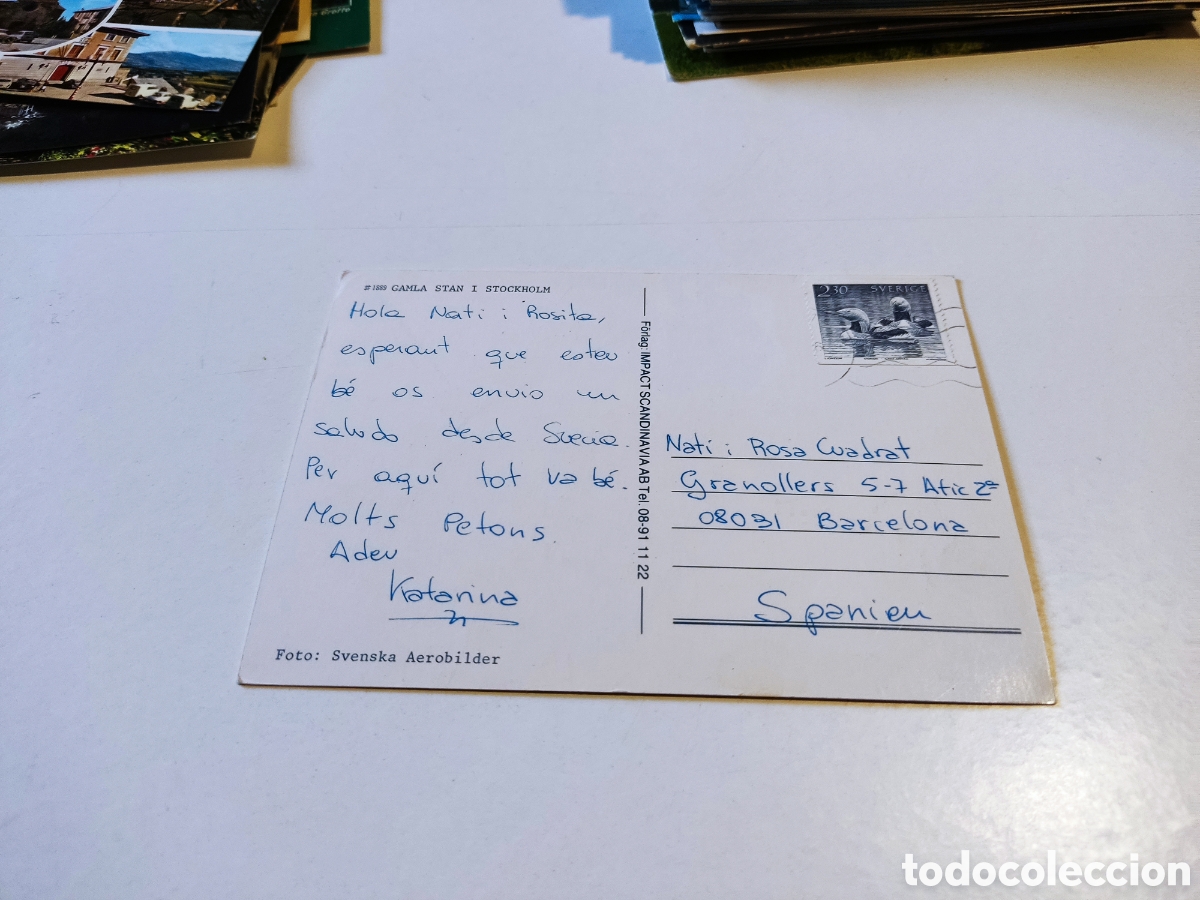 #1889 GAMLA STAN I STOCKHOLM
Hola Nati i Rosita,
esperant que esteu
bé os envio un
saludo desde Suecia.
Per aquí tot va bé.
Molts Petons.
Adeu
Katarina
Foto: Svenska Aerobilder
Förlag: IMPACT SCANDINAVIA AB Tel. 08-91 11 22
2.30 SVERIGE
Nati i Rosa Cuadrat
Granollers 5-7 Atic 2ª
08031 Barcelona
Spanien
todocoleccion